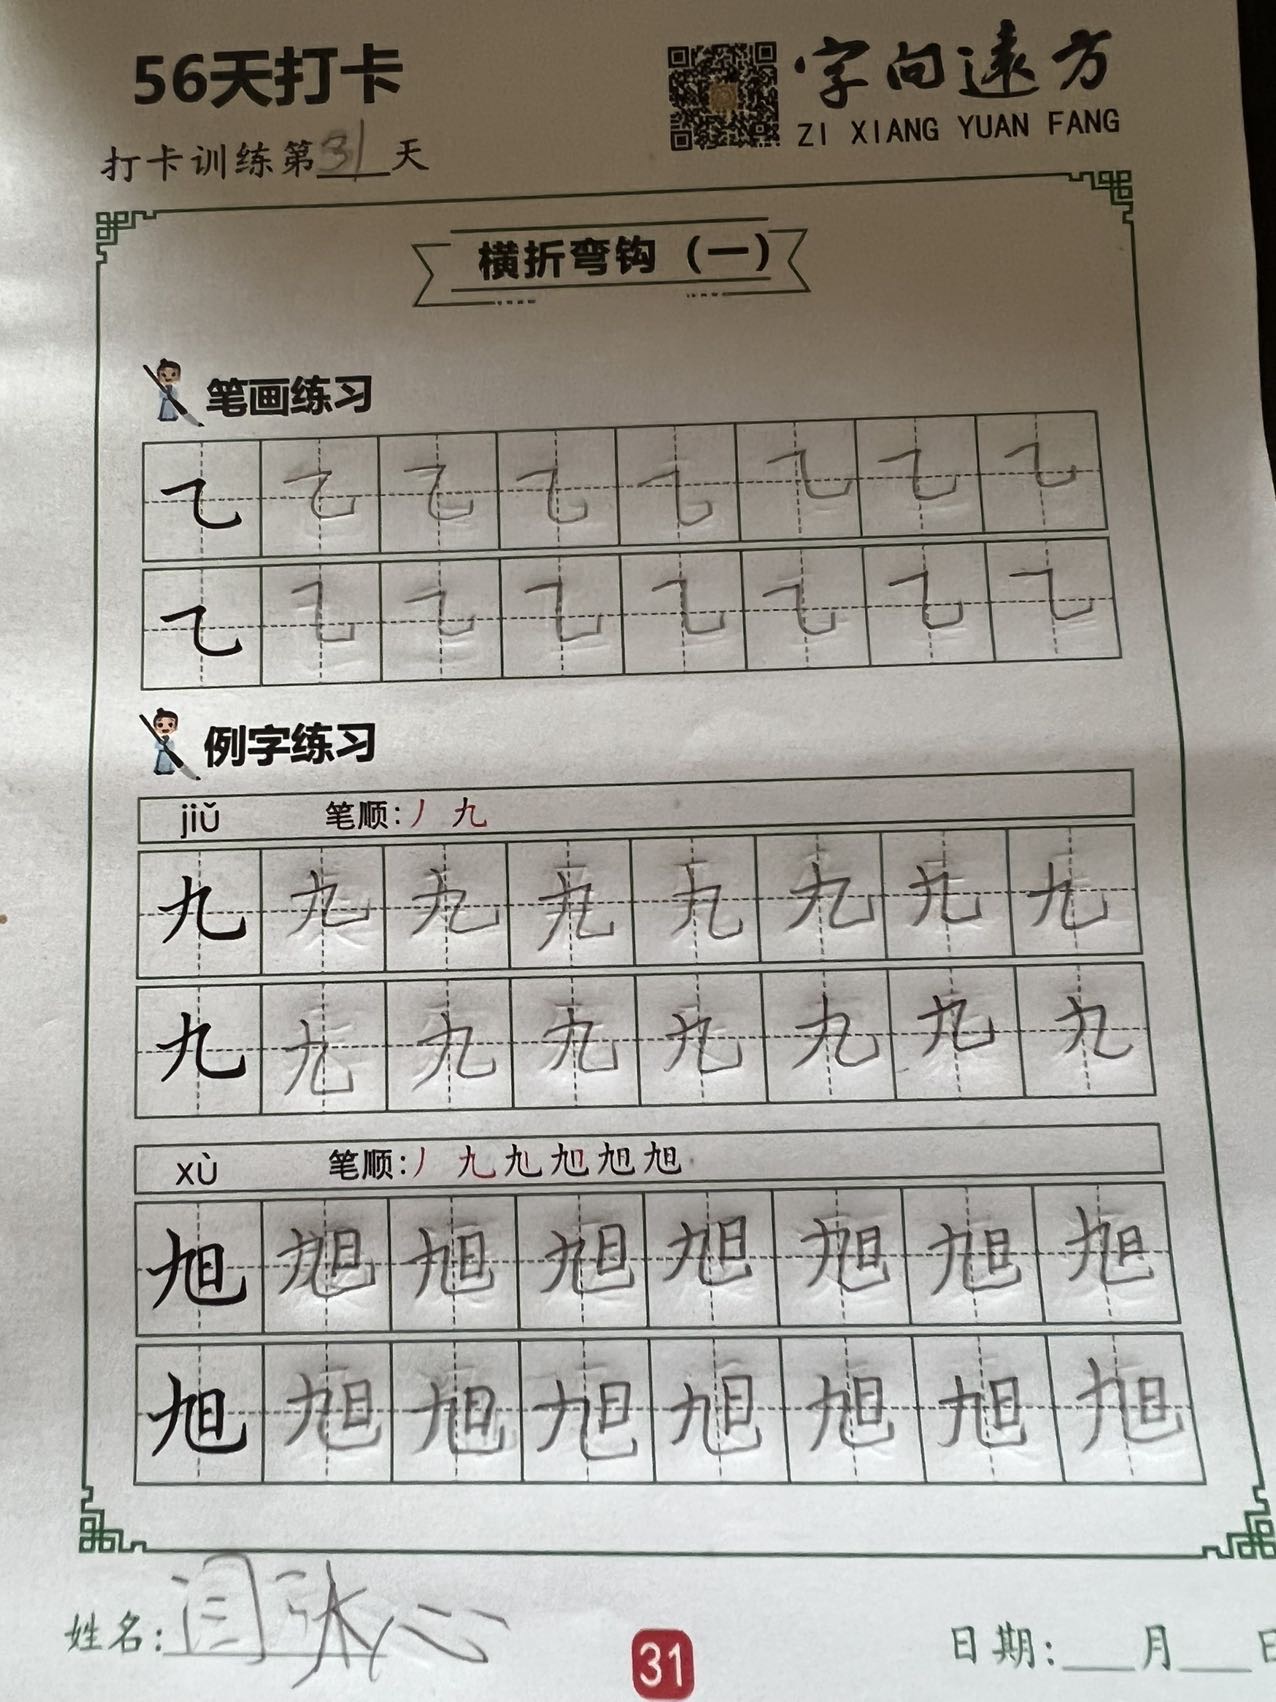 56天打卡
字向遠方
ZI XIANG YUAN FANG
打卡训练第31天
横折弯钩（一）
笔画练习
㇈ ㇈ ㇈ ㇈ ㇈ ㇈ ㇈ ㇈
㇈ ㇈ ㇈ ㇈ ㇈ ㇈ ㇈ ㇈
例字练习
jiǔ 笔顺：丿 九
九 九 九 九 九 九 九 九
九 九 九 九 九 九 九 九
xù 笔顺：丿 九 旭 旭
旭 旭 旭 旭 旭 旭 旭 旭
旭 旭 旭 旭 旭 旭 旭 旭
姓名：闫
31
日期：___月___日